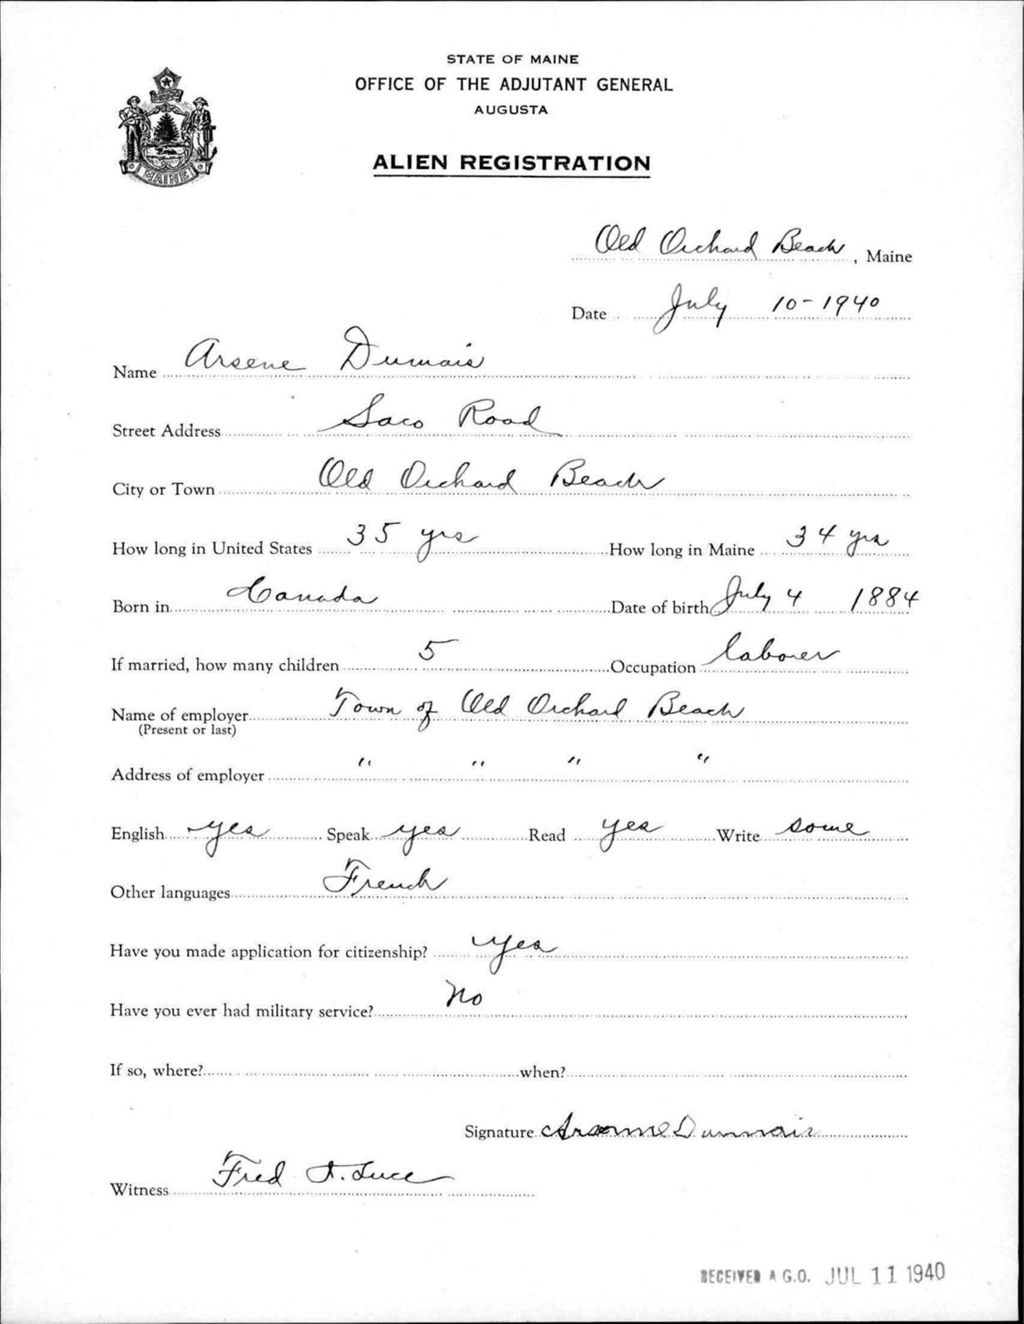 STATE OF MAINE
OFFICE OF THE ADJUTANT GENERAL
AUGUSTA
ALIEN REGISTRATION
MAINE
Old Orchard Beach, Maine
Date July 10-1940
Name Arsene Dumais
Street Address Saco Road
City or Town Old Orchard Beach
How long in United States 35 yrs How long in Maine 34 yrs
Born in Canada Date of birth July 4 1884
If married, how many children 5 Occupation laborer
Name of employer Town of Old Orchard Beach
(Present or last)
Address of employer " " " "
English yes Speak yes Read yes Write some
Other languages French
Have you made application for citizenship? yes
Have you ever had military service? No
If so, where? when?
Signature Arsene Dumais
Witness Fred I. Luce
RECEIVED A.G.O. JUL 11 1940